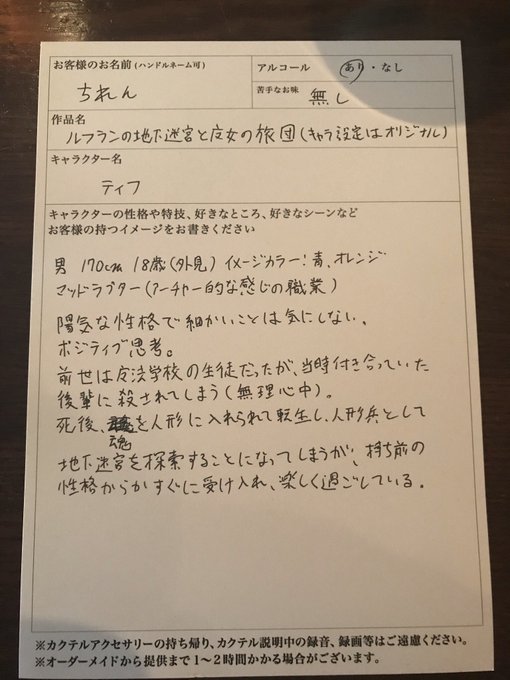 お客様のお名前(ハンドルネーム可)
ちれん
アルコール あり・なし
苦手なお味 無し
作品名
ルフランの地下迷宮と魔女の旅団(キャラ設定はオリジナル)
キャラクター名
ティフ
キャラクターの性格や特技、好きなところ、好きなシーンなど
お客様の持つイメージをお書きください
男 170cm 18歳(外見) イメージカラー:青、オレンジ
マッドラプター(アーチャー的な感じの職業)
陽気な性格で細かいことは気にしない。
ポジティブ思考。
前世は魔法学校の生徒だったが、当時付き合っていた
後輩に殺されてしまう(無理心中)。
死後、魂を人形に入れられて転生し、人形兵として
地下迷宮を探索することになってしまうが、持ち前の
性格からかすぐに受け入れ、楽しく過ごしている。
※カクテルアクセサリーの持ち帰り、カクテル説明中の録音、録画等はご遠慮ください。
※オーダーメイドから提供まで1〜2時間かかる場合がございます。